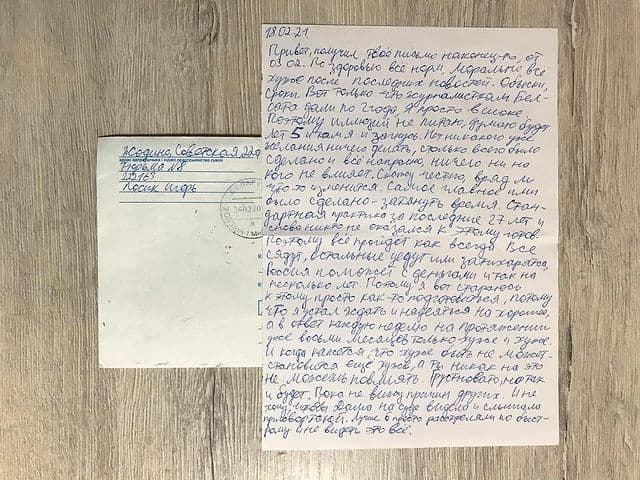 Жодино, Советская, 22а
Тюрьма №8
222163
Лосик Игорь
18.02.21
Привет, получил твоё письмо наконец-то, от
02. По здоровью всё норм, морально всё
хуже после последних новостей. Обыски,
сроки. Вот только что журналисткам Бел-
сата дали по 2 года, я просто в шоке.
Поэтому иллюзий не питаю, думаю будет
лет 5 и каля и запись. Нет никакого уже
желания ничего делать, столько всего было
сделано и всё напрасно, ничего ни на
кого не влияет. Скажу честно, вряд ли
что-то изменится. Самое главное ими
было сделано - затянуть время. Стан-
дартная практика за последние 27 лет и
снова никто не оказался к этому готов.
Поэтому всё пройдёт как всегда. Все
сядут, остальные уедут или затихарятся,
Россия поможет с деньгами и так на
несколько лет. Потому я вот стараюсь
к этому просто как-то подготовиться, потому
что я устал ждать и надеяться на хорошее,
а в ответ каждую неделю на протяжении
уже восьми месяцев только хуже и хуже.
И когда кажется, что хуже быть не может -
становится ещё хуже, а ты никак на это
не можешь повлять. Грустновато, но так
и будет. Пока не вижу причин других. И не
хочу, чтобы Даша на суде видела и слышала
приговор такой. Лучше б просто расстреляли по быст-
рому и не видеть это всё.